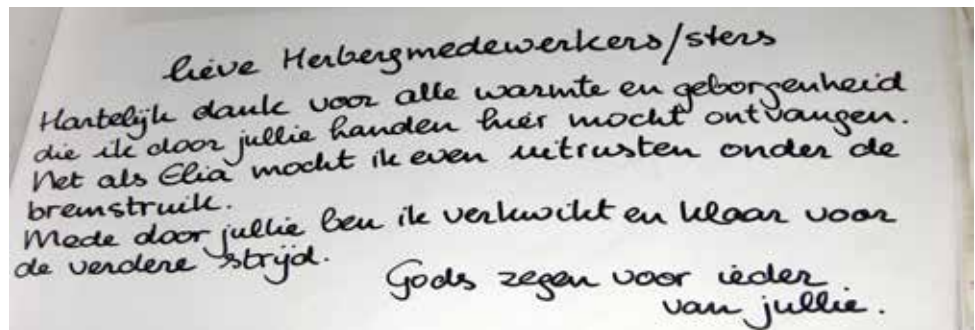 lieve Herbergmedewerkers/sters
Hartelijk dank voor alle warmte en geborgenheid
die ik door jullie handen hier mocht ontvangen.
Net als Elia mocht ik even uitrusten onder de
bremstruik.
Mede door jullie ben ik verkwikt en klaar voor
de verdere strijd.
Gods zegen voor ieder
van jullie.